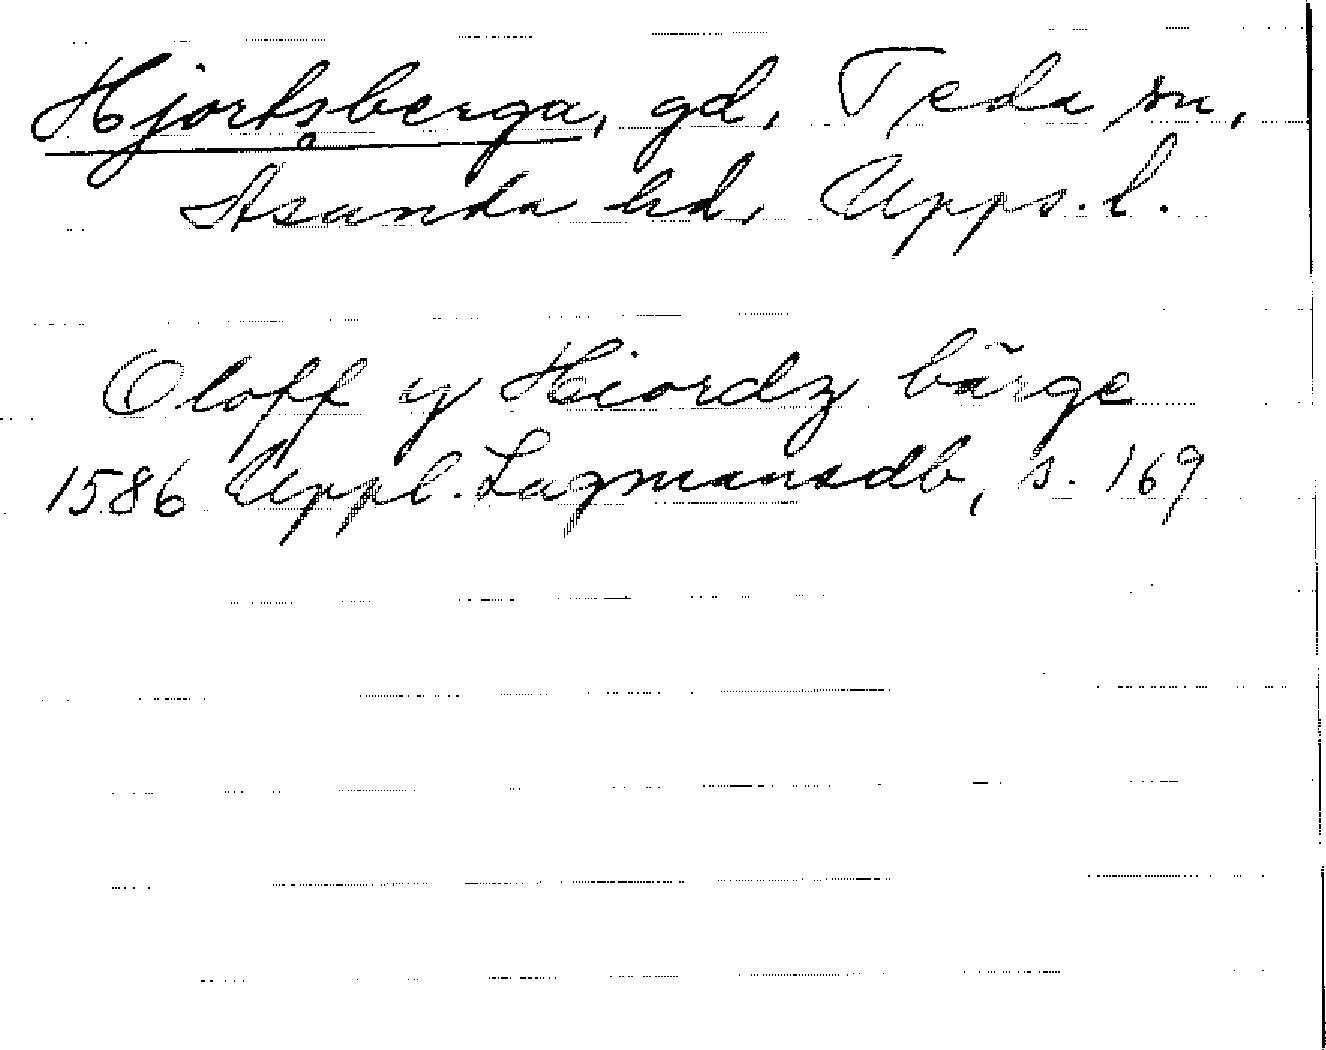 Hjortsberga, gd, Teda sn,
Åsunda hd, Upps. l.
Oloff ij Hiordz bärge
1586 Uppl. Lagmansdb, s. 169